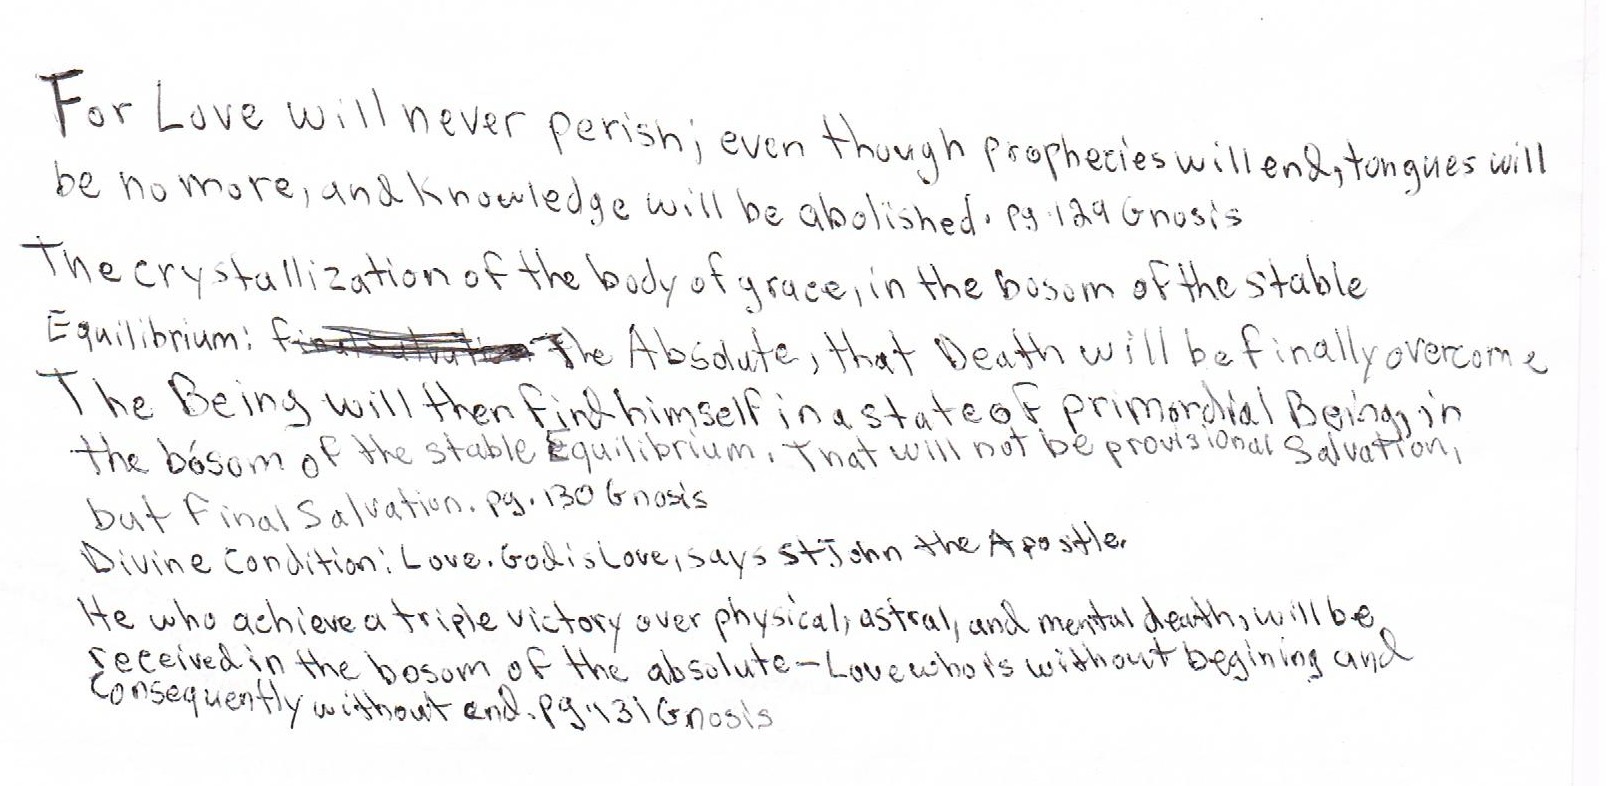 For Love will never perish; even though prophecies will end, tongues will
be no more, and Knowledge will be abolished. pg.129 Gnosis
The crystallization of the body of grace, in the bosom of the stable
Equilibrium: The Absolute, that Death will be finally overcome
The Being will then find himself in a state of primordial Being, in
the bosom of the stable Equilibrium. That will not be provisional Salvation,
but Final Salvation. pg. 130 Gnosis
Divine Condition: Love. God is Love, says St John the Apostle.
He who achieve a triple victory over physical, astral, and mental death, will be
received in the bosom of the absolute - Love who is without begining and
Consequently without end. pg.131 Gnosis